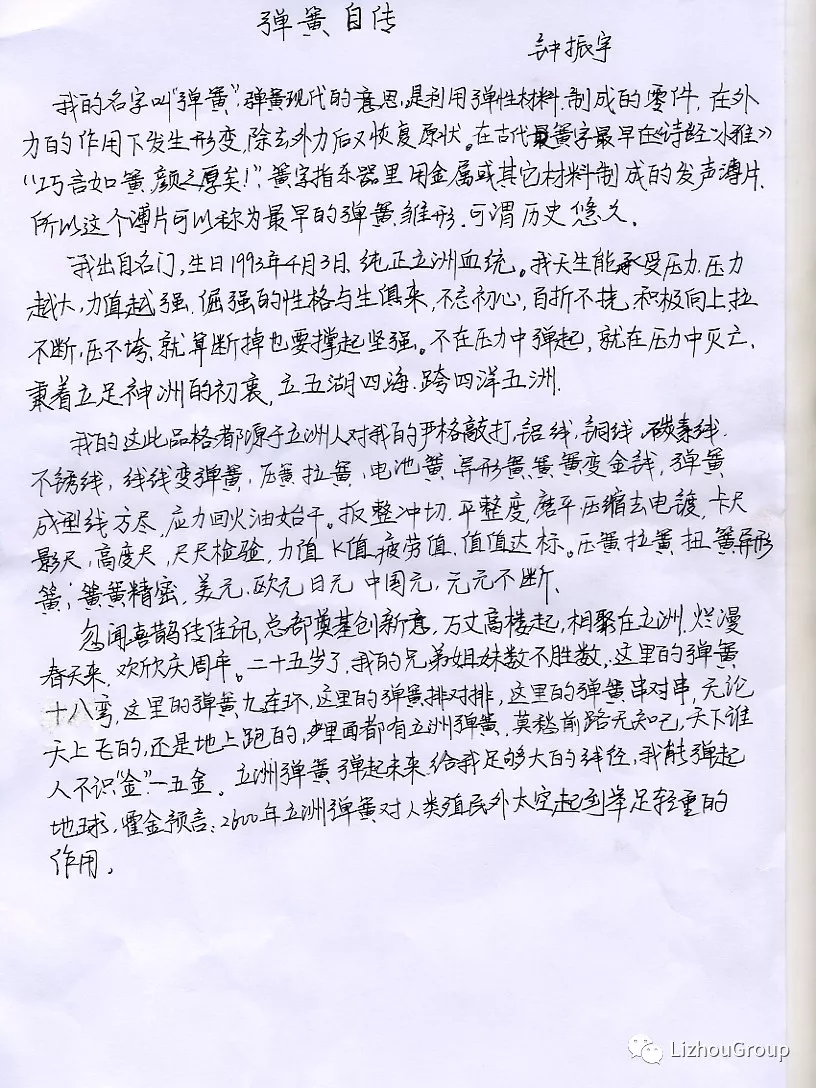 弹簧自传
钟振宇
我的名字叫“弹簧”,弹簧现代的意思,是利用弹性材料.制成的零件.在外
力的作用下发生形变,除去外力后又恢复原状。在古代簧字最早在《诗经·小雅》
“巧言如簧,颜之厚矣!”,簧字指乐器里用金属或其它材料制成的发声薄片.
所以这个薄片可以称为最早的弹簧雏形.可谓历史悠久.
我出自名门,生日1993年4月3日.纯正立洲血统。我天生能承受压力.压力
越大,力值越强.倔强的性格与生俱来,不忘初心,百折不挠.积极向上,拉
不断,压不垮,就算断掉也要撑起坚强。不在压力中弹起,就在压力中灭亡.
秉着立足神洲的初衷,立五湖四海.跨四洋五洲.
我的这此品格都源于立洲人对我的严格敲打,铝线,铜线.碳素线.
不锈线,线线变弹簧,压簧拉簧,电池簧,异形簧,簧簧变金钱,弹簧
成型线方尽,应力回火油始干。扳整冲切.平整度,磨平压缩去电镀,卡尺
影尺,高度尺,尺尺检验,力值 K值疲劳值.值值达标。压簧拉簧.扭簧异形
簧;簧簧精密,美元.欧元日元 中国元,元元不断.
忽闻喜鹊传佳讯,总部奠基创新意,万丈高楼起,相聚在立洲.烂漫
春天来,欢欣庆周年。二十五岁了,我的兄弟姐妹数不胜数,这里的弹簧
十八弯,这里的弹簧九连环,这里的弹簧排对排,这里的弹簧串对串,无论
天上飞的,还是地上跑的,里面都有立洲弹簧,莫愁前路无知己,天下谁
人不识“金”一五金。立洲弹簧 弹起未来.给我足够大的线径,我能弹起
地球,霍金预言:2600年立洲弹簧对人类殖民外太空起到举足轻重的
作用.
LizhouGroup